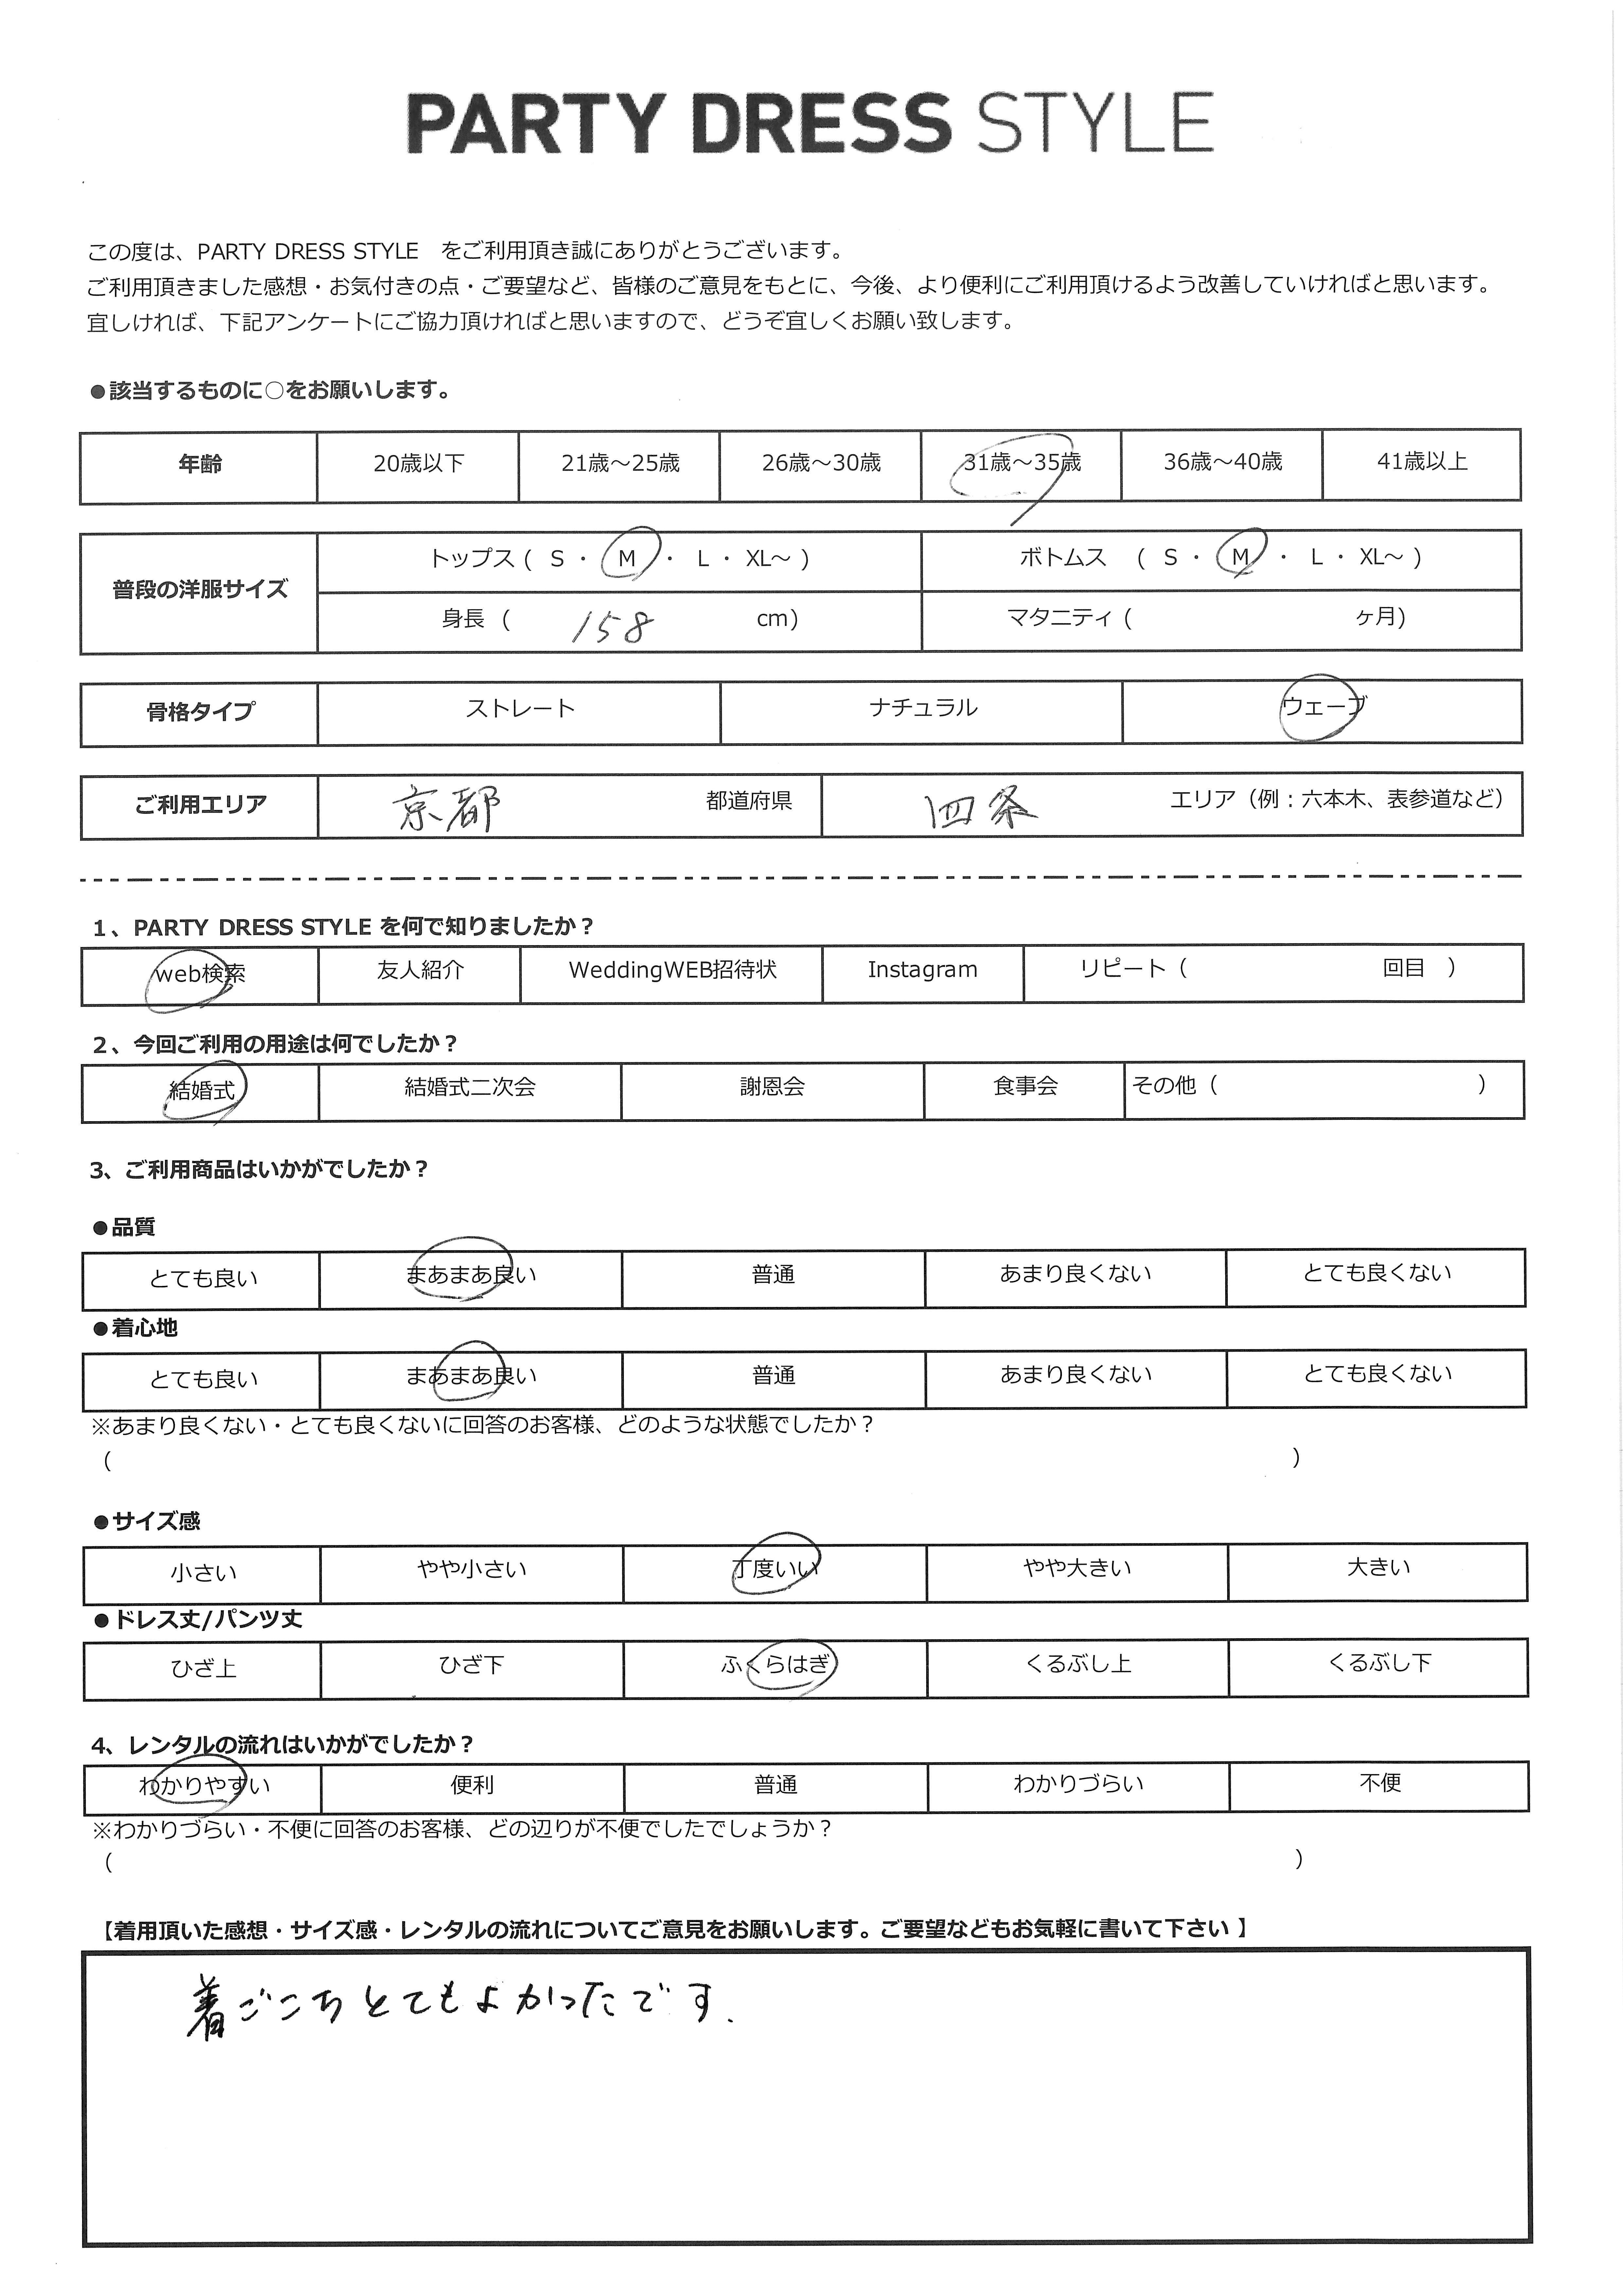 PARTY DRESS STYLE
この度は、PARTY DRESS STYLE　をご利用頂き誠にありがとうございます。
ご利用頂きました感想・お気付きの点・ご要望など、皆様のご意見をもとに、今後、より便利にご利用頂けるよう改善していければと思います。
宜しければ、下記アンケートにご協力頂ければと思いますので、どうぞ宜しくお願い致します。
●該当するものに○をお願いします。
年齢 20歳以下 21歳～25歳 26歳～30歳 31歳～35歳 36歳～40歳 41歳以上
普段の洋服サイズ
トップス ( S ・ M ・ L ・ XL～ ) ボトムス ( S ・ M ・ L ・ XL～ )
身長 ( 158 cm) マタニティ ( ヶ月)
骨格タイプ ストレート ナチュラル ウェーブ
ご利用エリア 京都 都道府県 四条 エリア（例：六本木、表参道など）
1、PARTY DRESS STYLE を何で知りましたか？
web検索 友人紹介 WeddingWEB招待状 Instagram リピート（ 回目 ）
2、今回ご利用の用途は何でしたか？
結婚式 結婚式二次会 謝恩会 食事会 その他（ ）
3、ご利用商品はいかがでしたか？
●品質
とても良い まあまあ良い 普通 あまり良くない とても良くない
●着心地
とても良い まあまあ良い 普通 あまり良くない とても良くない
※あまり良くない・とても良くないに回答のお客様、どのような状態でしたか？
（ ）
●サイズ感
小さい やや小さい 丁度いい やや大きい 大きい
●ドレス丈/パンツ丈
ひざ上 ひざ下 ふくらはぎ くるぶし上 くるぶし下
4、レンタルの流れはいかがでしたか？
わかりやすい 便利 普通 わかりづらい 不便
※わかりづらい・不便に回答のお客様、どの辺りが不便でしたでしょうか？
（ ）
【着用頂いた感想・サイズ感・レンタルの流れについてご意見をお願いします。ご要望などもお気軽に書いて下さい 】
着ごこちとてもよかったです.